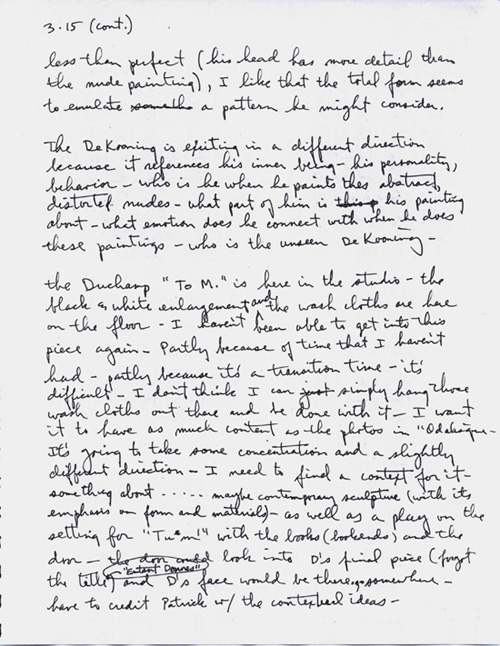 3.15 (cont.)
less than perfect (his head has more detail than
the nude painting), I like that the total form seems
to emulate a pattern he might consider.
The DeKooning is exiting in a different direction
because it references his inner being - his personality,
behavior - who is he when he paints thes abstract,
distorted nudes - what part of him is his painting
about - what emotion does he connect with when he does
these paintings - who is the unseen DeKooning -
the Duchamp "To M." is here in the studio - the
black & white enlargement and the wash cloths are here
on the floor - I haven't been able to get into this
piece again - Partly because of time that I haven't
had - partly because it's a transition time - it's
difficult - I don't think I can just simply hang those
wash cloths out there and be done with it - I want
it to have as much content as the photos in "Odalisque -
It's going to take some concentration and a slightly
different direction - I need to find a context for it -
something about ..... maybe contemporary sculpture (with its
emphasis on form and materials) - as well as a play on the
setting for "Tu m'" with the books (bookends) and the
door - the door could look into D's final piece (forgot
the title) "Entant Donnes" and D's face would be there, somewhere -
have to credit Patrick w/ the contextual ideas -